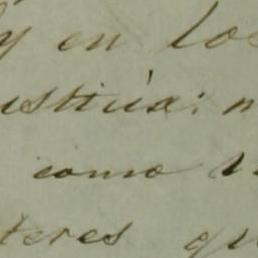 y en los
usticia: n
como u
teres qu